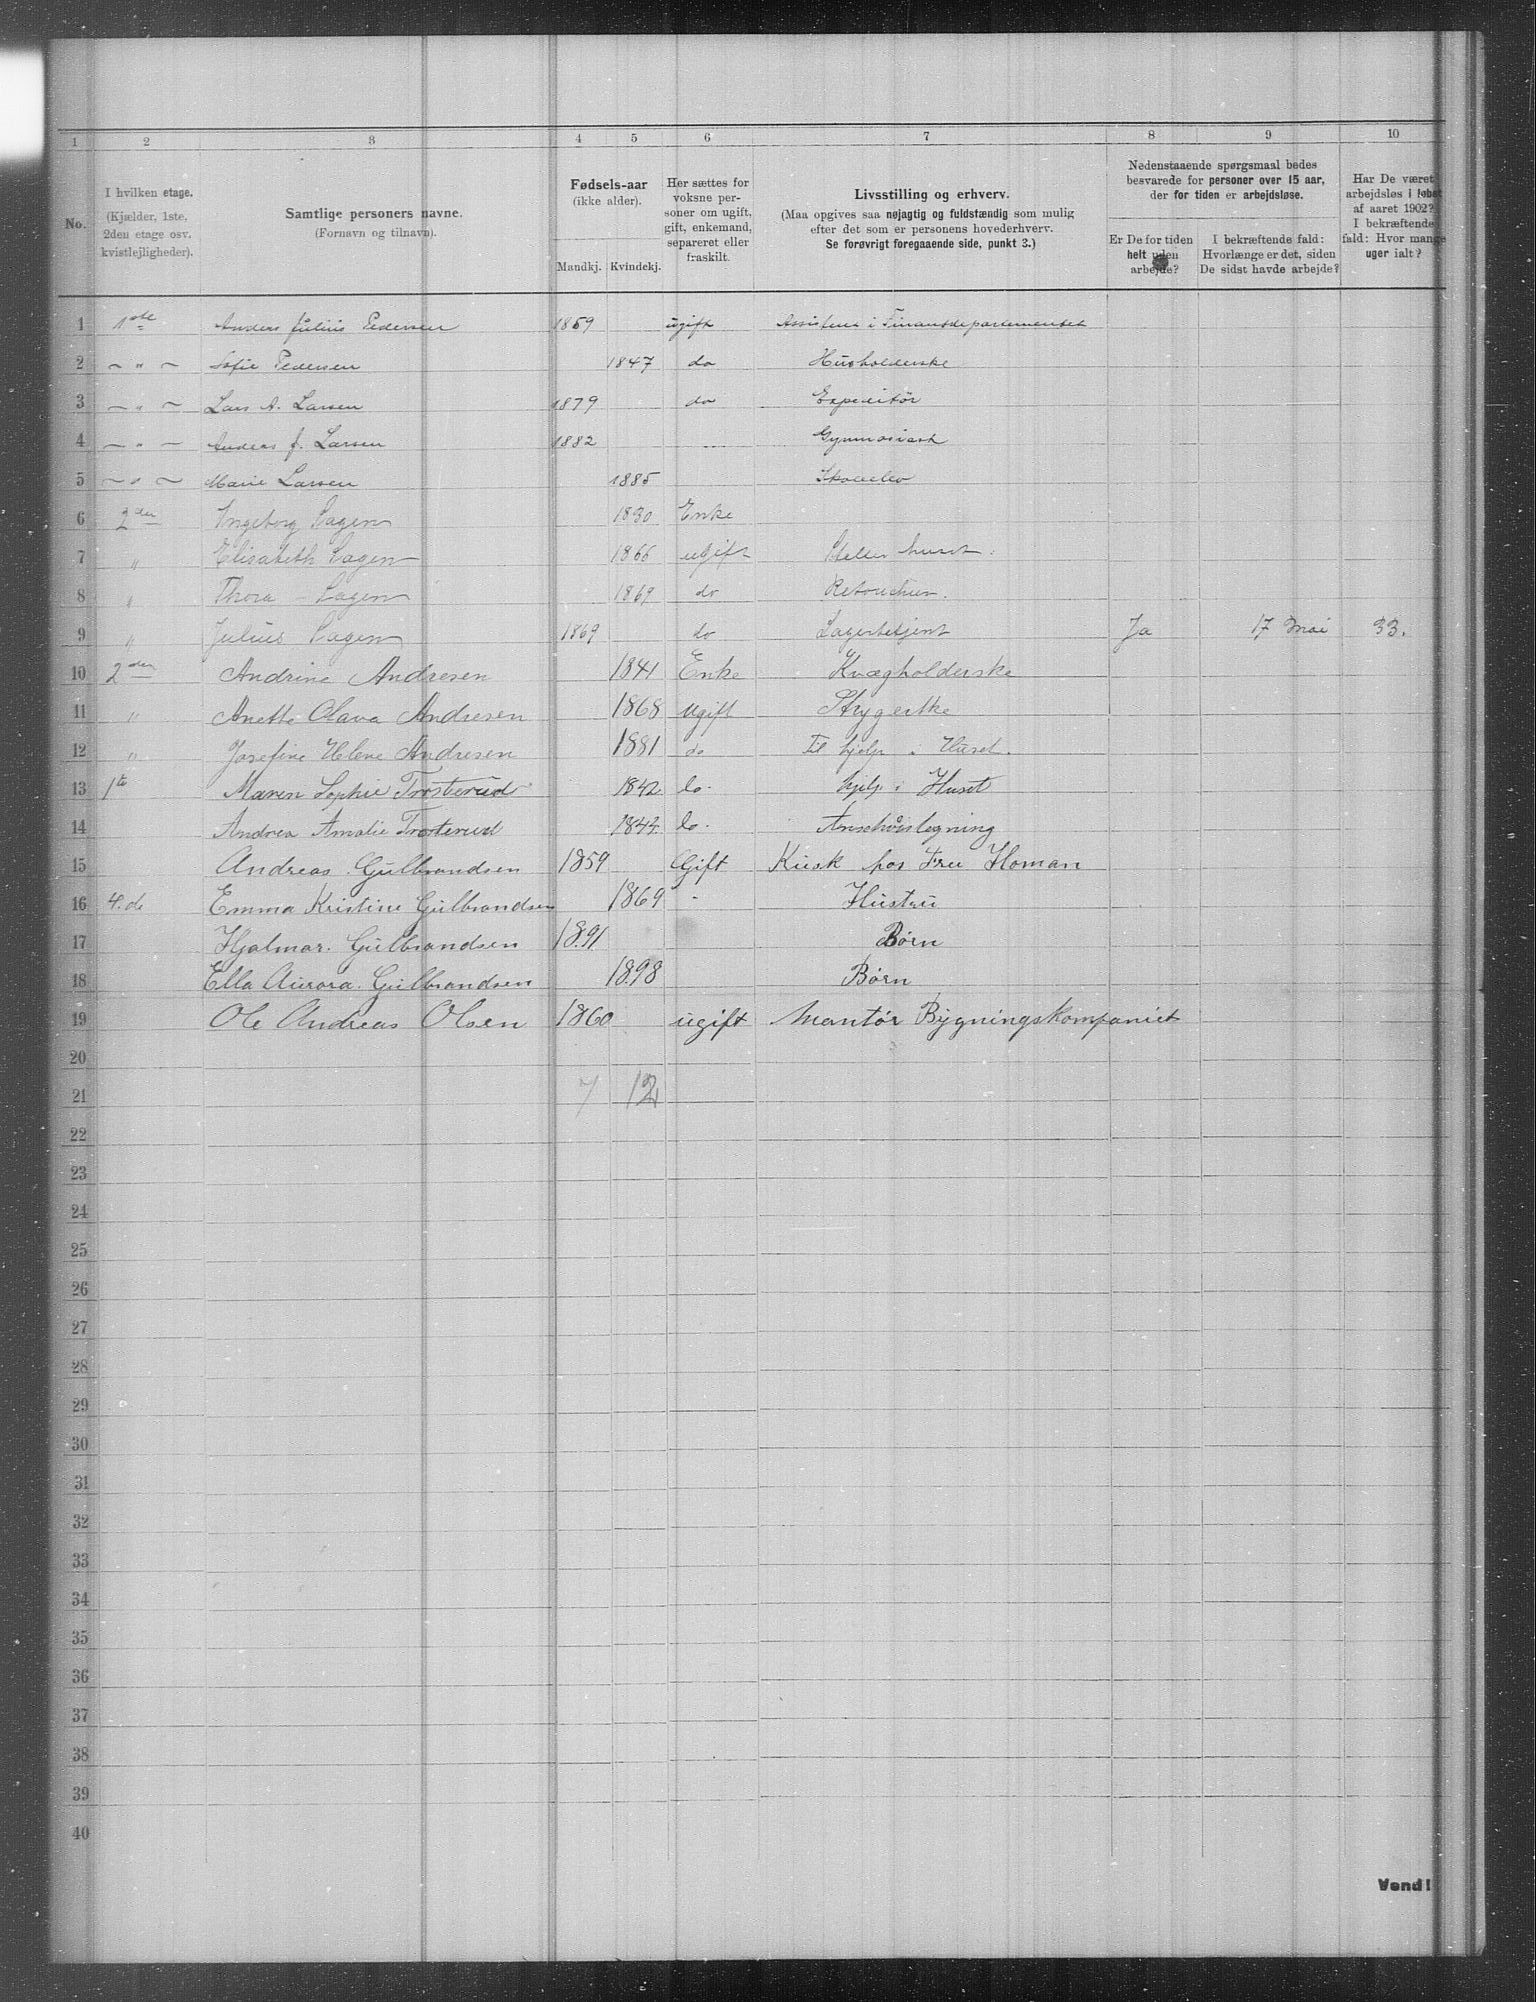 1 2 3 4 5 6 7 8 9 10
No.
I hvilken etage.
(Kjælder, 1ste,
2den etage osv.
kvistlejligheder).
Samtlige personers navne.
(Fornavn og tilnavn).
Fødsels-aar
(ikke alder).
Mandkj. Kvindekj.
Her sættes for
voksne per-
soner om ugift,
gift, enkemand,
separeret eller
fraskilt.
Livsstilling og erhverv.
(Maa opgives saa nøjagtig og fuldstændig som mulig
efter det som er personens hovederhverv.
Se forøvrigt foregaaende side, punkt 3.)
Nedenstaaende spørgsmaal bedes
besvarede for personer over 15 aar,
der for tiden er arbejdsløse.
Er De for tiden
helt uden
arbejde?
I bekræftende fald:
Hvorlænge er det, siden
De sidst havde arbejde?
Har De været
arbejdsløs i løbet
af aaret 1902?
I bekræftende
fald: Hvor mange
uger ialt?
1 1ste Anders Julius Pedersen 1859 ugift Assistent i Finansdepartementet
2 — " — Sofie Pedersen 1847 do Husholderske
3 — " — Lars A. Larsen 1879 do Expeditør
4 — " — Anders J. Larsen 1882 Gymnasiast
5 — " — Marie Larsen 1885 Skoleelev
6 2den Ingeborg Sagen 1830 Enke
7 " Elisabeth Sagen 1866 ugift Steller huset.
8 " Thora Sagen 1869 do
9 " Julius Sagen 1869 do Lagerbetjent Ja 17 Mai 33.
10 2den Andrine Andresen 1841 Enke Kvægholderske
11 " Anette Olava Andresen 1868 Ugift Strygerske
12 " Josefine Helene Andresen 1881 do Til hjelp i Huset.
13 1te Maren Sophie Trosterud 1842 do. hjelp i Huset
14 Andrea Amalie Trosterud 1844 do.
15 Andreas Gulbrandsen 1859 Gift Kusk hos Fru Homan
16 4.de Emma Kristine Gulbrandsen 1869 " Hustru
17 Hjalmar. Gulbrandsen 1891 Børn
18 Ella Aurora. Gulbrandsen 1898 Børn
19 Ole Andreas Olsen 1860 ugift Mantør Bygningskompaniet
20
21 7 12
22
23
24
25
26
27
28
29
30
31
32
33
34
35
36
37
38
39
40
Vend!